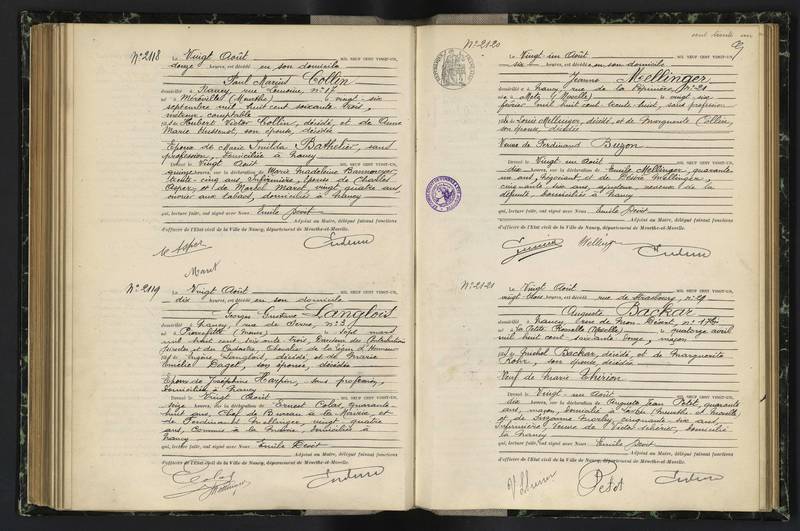 N° 2118
Le Vingt Août MIL NEUF CENT VINGT-UN,
douze heures, est décédé en son domicile
Paul Marius Collin
domicilié à Nancy, rue n° 17
né à Méréville (Meurthe) le vingt-six
septembre mil huit cent soixante trois,
comptable
fils de Hubert Victor Collin, décédé, et de Anne
Marie son épouse, décédée
Epoux de Marie Emilia Bathelier, sans
profession, domiciliée à Nancy
Dressé le Vingt Août MIL NEUF CENT VINGT-UN,
quinze heures, sur la déclaration de Marie Madeleine
trente cinq ans, infirmière, épouse de Charles
Asper, et de Marcel Maret, vingt quatre ans
ouvrier aux tabacs, domiciliés à Nancy
qui, lecture faite, ont signé avec Nous Emile
Adjoint au Maire, délégué faisant fonctions
d'officier de l'Etat civil de la Ville de Nancy, département de Meurthe-et-Moselle.
Asper
Maret
N° 2119
Le Vingt Août MIL NEUF CENT VINGT-UN,
dix heures, est décédé en son domicile
Georges Gustave Langlois
domicilié à Nancy, rue de Serre, n° 3
né à Pierrefitte (Meuse) le sept mars
mil huit cent soixante trois, Directeur des Contributions
directes et du Cadastre, Chevalier de la Légion d'Honneur
fils de Eugène Langlois, décédé, et de Marie
Dagel, son épouse, décédée
Epoux de Joséphine sans profession,
domiciliée à Nancy
Dressé le Vingt Août MIL NEUF CENT VINGT-UN,
seize heures, sur la déclaration de Ernest Colas, quarante-
huit ans, Chef de Bureau à la Mairie, et
de Ferdinand vingt quatre
ans, Commis à la Mairie, domiciliés à
Nancy
qui, lecture faite, ont signé avec Nous Emile
Adjoint au Maire, délégué faisant fonctions
d'officier de l'Etat civil de la Ville de Nancy, département de Meurthe-et-Moselle.
Colas
cent trente un
N° 2120
Le Vingt un Août MIL NEUF CENT VINGT-UN,
six heures, est décédée en son domicile
Jeanne Mellinger
domiciliée à Nancy, rue de la Pépinière, n° 21
née à Metz (Moselle) le vingt-six
février mil huit cent trente huit, sans profession
fille de Louis Mellinger, décédé, et de Marguerite Collin,
son épouse, décédée
Veuve de Ferdinand Buzon
Dressé le Vingt un Août MIL NEUF CENT VINGT-UN,
dix heures, sur la déclaration de Emile Mellinger, quarante
un ans, négociant et de Désiré Mellinger
cinquante six ans, neveux de la
défunte, domiciliés à Nancy
qui, lecture faite, ont signé avec Nous Emile
Adjoint au Maire, délégué faisant fonctions
d'officier de l'Etat civil de la Ville de Nancy, département de Meurthe-et-Moselle.
N° 2121
Le Vingt Août MIL NEUF CENT VINGT-UN,
vingt trois heures, est décédé rue de Strasbourg, n° 29
Auguste Backar
domicilié à Nancy, rue de
né à la Petite Rosselle (Moselle) le quatorze avril
mil huit cent soixante onze, maçon
fils de Michel Backar, décédé, et de Marguerite
Rohr, son épouse, décédée
Veuf de Marie Thirion
Dressé le Vingt-un Août MIL NEUF CENT VINGT-UN,
dix heures, sur la déclaration de Auguste Jean Petot, quarante
ans, maçon, domicilié à (Meurthe et Moselle)
et de Suzanne cinquante six ans
infirmière, veuve de Victor domiciliée
à Nancy
qui, lecture faite, ont signé avec Nous Emile
Adjoint au Maire, délégué faisant fonctions
d'officier de l'Etat civil de la Ville de Nancy, département de Meurthe-et-Moselle.
Petot